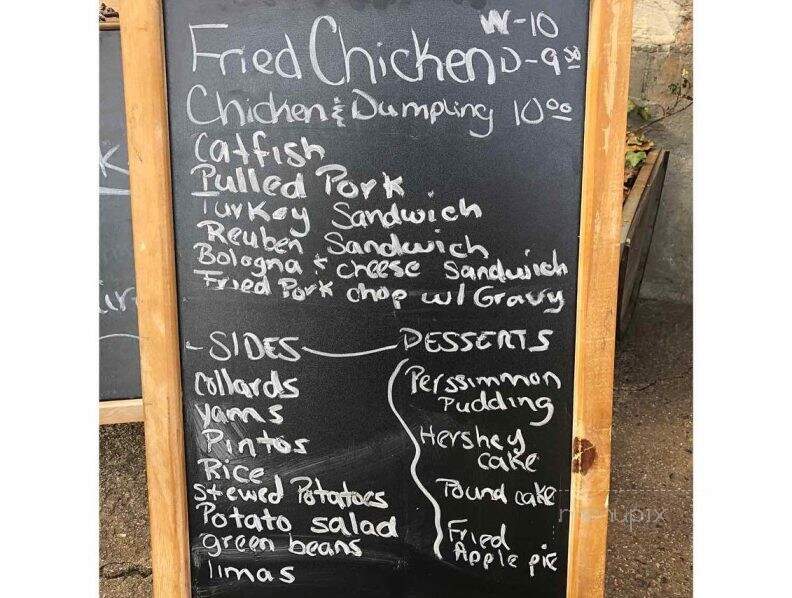 W-10
Fried Chicken D-9.50
Chicken & Dumpling 10.00
Catfish
Pulled Pork
Turkey Sandwich
Reuben Sandwich
Bologna & cheese Sandwich
Fried Pork chop w/ Gravy
SIDES
collards
yams
Pintos
Rice
stewed Potatoes
Potato salad
green beans
limas
DESSERTS
Perssimmon
Pudding
Hershey
cake
Pound cake
Fried
Apple pie
menupix